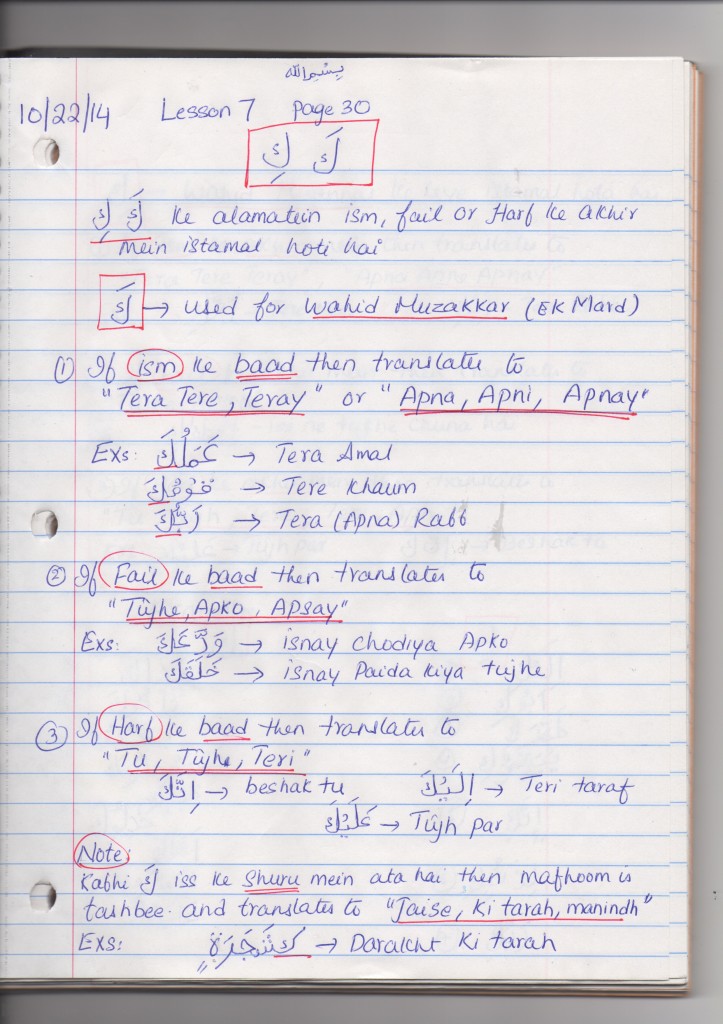 بسم الله
10/22/14 Lesson 7 Page 30
كَ كِ
كَ كِ ke alamatein ism, fail or Harf ke akhir
mein istamal hoti hai
كَ → used for Wahid Muzakkar (EK Mard)
① If ism ke baad then translates to
"Tera Tere, Teray" or "Apna, Apni, Apnay"
Exs: عَمَلُكَ → Tera Amal
قَوْمُكَ → Tere Khaum
رَبُّكَ → Tera (Apna) Rabb
② If Fail ke baad then translates to
"Tujhe, Apko, Apsay"
Exs: وَدَّعَكَ → isnay chodiya Apko
خَلَقَكَ → isnay Paida kiya tujhe
③ If Harf ke baad then translates to
"Tu, Tujhe, Teri"
اِنَّكَ → beshak tu اِلَيْكَ → Teri taraf
عَلَيْكَ → Tujh par
Note:
Kabhi كَ iss ke Shuru mein ata hai then mafhoom is
tashbee. and translates to "Jaise, Ki tarah, manindh"
Exs: كَشَجَرَةٍ → Darakht Ki tarah